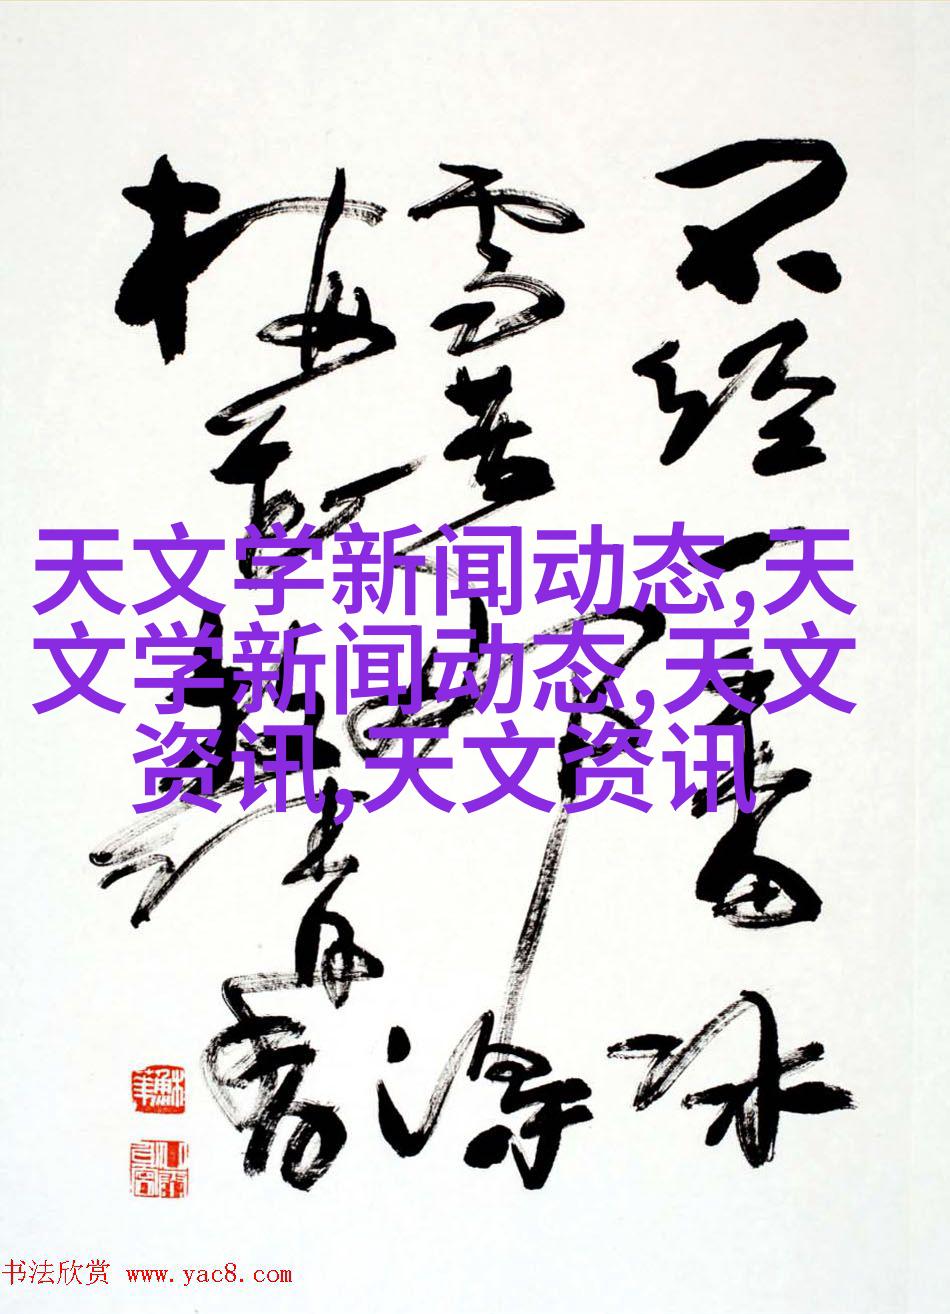 不经一番冰
雪苦那得
梅清香
天文学新闻动态,天
文学新闻动态,天文
资讯,天文资讯
书法欣赏 www.yac8.com